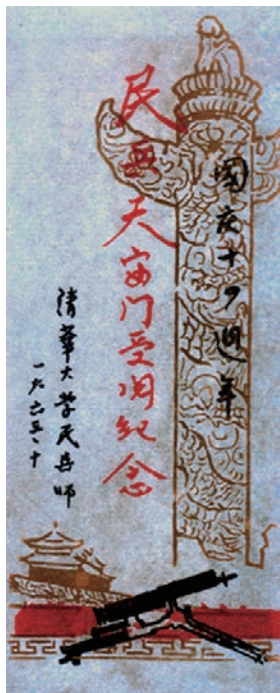 國庆十六週年
民兵天安门受阅纪念
清華大学民兵师
一九六五、十